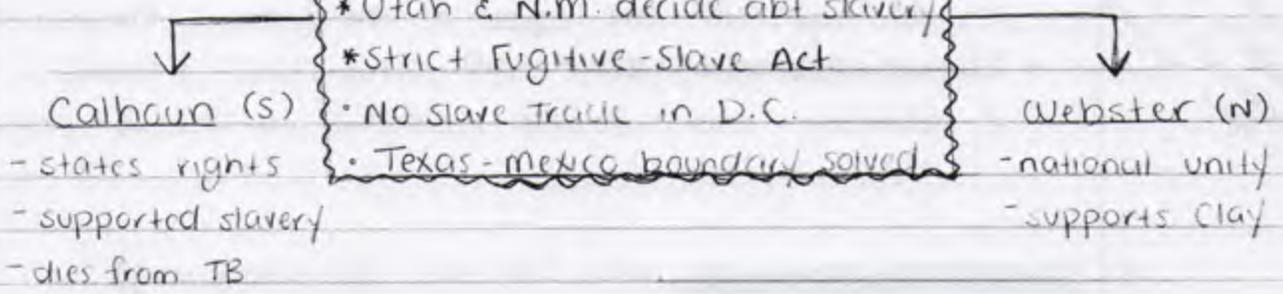 * Utah & N.M. decide abt slavery
* Strict Fugitive-Slave Act
• No slave trade in D.C.
• Texas-mexico boundary solved
Calhoun (S)
- states rights
- supported slavery
- dies from TB
Webster (N)
- national unity
- supports Clay